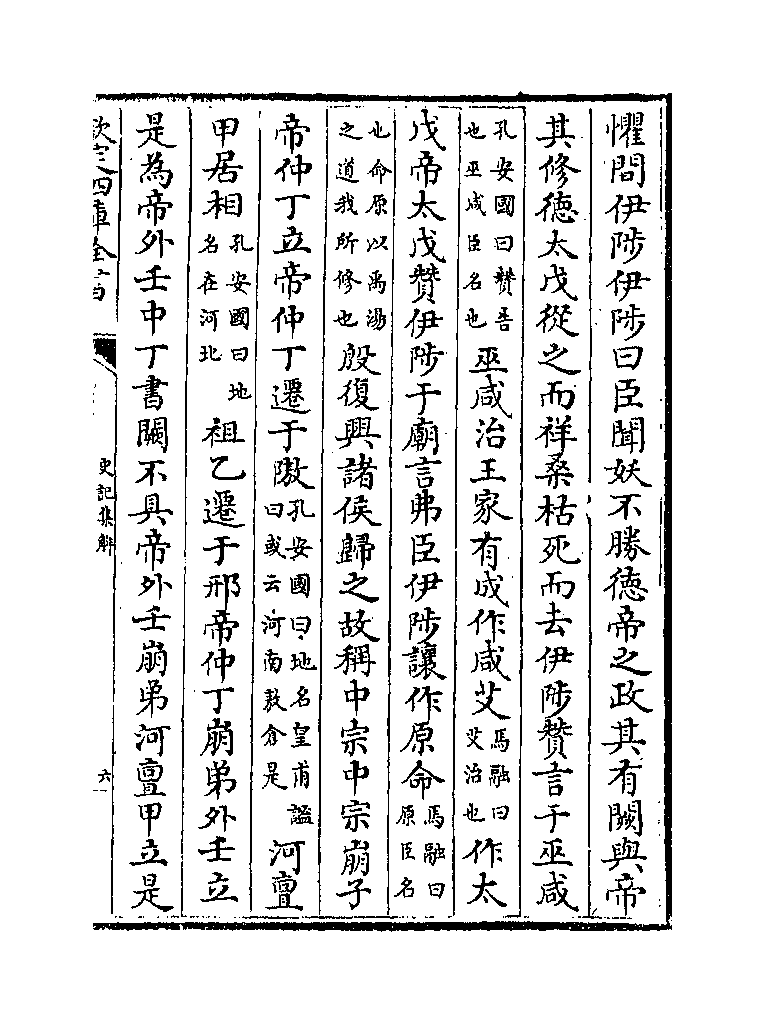 懼問伊陟伊陟曰臣聞妖不勝德帝之政其有闕與帝
其修德太戊從之而祥桑枯死而去伊陟贊言于巫咸
孔安國曰贊告也巫咸臣名也巫咸治王家有成作咸艾馬融曰艾治也作太
戊帝太戊贊伊陟于廟言弗臣伊陟讓作原命馬融曰原臣名
也命原以禹湯之道我所修也殷復興諸侯歸之故稱中宗中宗崩子
帝仲丁立帝仲丁遷于隞孔安國曰地名皇甫謐曰或云河南敖倉是河亶
甲居相孔安國曰地名在河北祖乙遷于邢帝仲丁崩弟外壬立
是為帝外壬中丁書闕不具帝外壬崩弟河亶甲立是
欽定四庫全書
史記集解
六